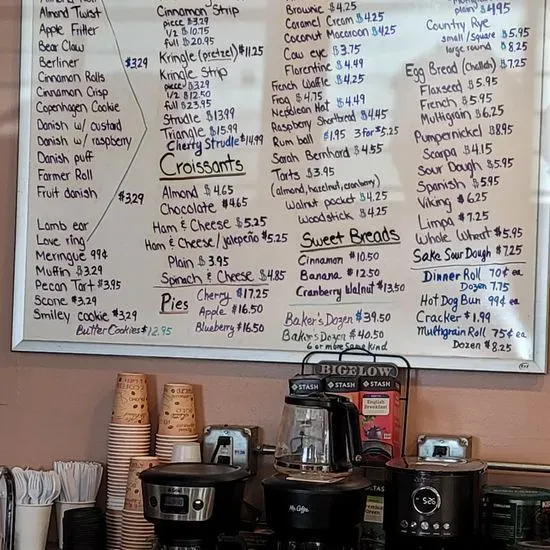 Almond Twist
Apple Fritter
Bear Claw
Berliner
$3.29
Cinnamon Rolls
Cinnamon Crisp
Copenhagen Cookie
Danish w/ custard
Danish w/ raspberry
Danish puff
Farmer Roll
Fruit danish
$3.29
Lamb ear
Love ring
Meringue 99¢
Muffin $3.29
Pecan Tart $3.95
Scone $3.29
Smiley cookie $3.29
Butter Cookies $12.95
Cinnamon Strip
piece $3.29
1/2 $10.75
full $20.95
Kringle (pretzel) $11.25
Kringle Strip
piece $3.29
1/2 $12.50
full $23.95
Strudle $13.99
Triangle $15.99
Cherry Strudle $14.99
Croissants
Almond $4.65
Chocolate $4.65
Ham & Cheese $5.25
Ham & Cheese/jalepeño $5.25
Plain $3.95
Spinach & Cheese $4.85
Pies
Cherry $17.25
Apple $16.50
Blueberry $16.50
Brownie $4.25
Caramel Cream $4.25
Coconut Macaroon $4.25
Cow eye $3.75
Florentine $4.49
French Waffle $4.25
Frog $4.75
Nepolean Hat $4.49
Raspberry Shortbread $4.45
Rum ball $1.95 3 for $5.25
Sarah Bernhard $4.55
Tarts $3.95
(almond, hazelnut, cranberry)
Walnut pocket $4.25
Woodstick $4.25
Sweet Breads
Cinnamon $10.50
Banana $12.50
Cranberry Walnut $13.50
Baker's Dozen $39.50
Baker's Dozen $40.50
6 or more same kind
plain $4.95
Country Rye
small/square $5.95
large round $8.25
Egg Bread (Challah) $7.25
Flaxseed $5.95
French $5.95
Multigrain $6.25
Pumpernickel $8.95
Scarpa $4.15
Sour Dough $5.95
Spanish $5.95
Viking $6.25
Limpa $7.25
Whole Wheat $5.95
Saka Sour Dough $7.25
Dinner Roll 70¢ ea
Dozen 7.75
Hot Dog Bun 99¢ ea
Cracker $1.99
Multigrain Roll 75¢ ea
Dozen $8.25
BIGELOW
STASH
STASH
STASH
English
Breakfast
Mr. Coffee
5:25